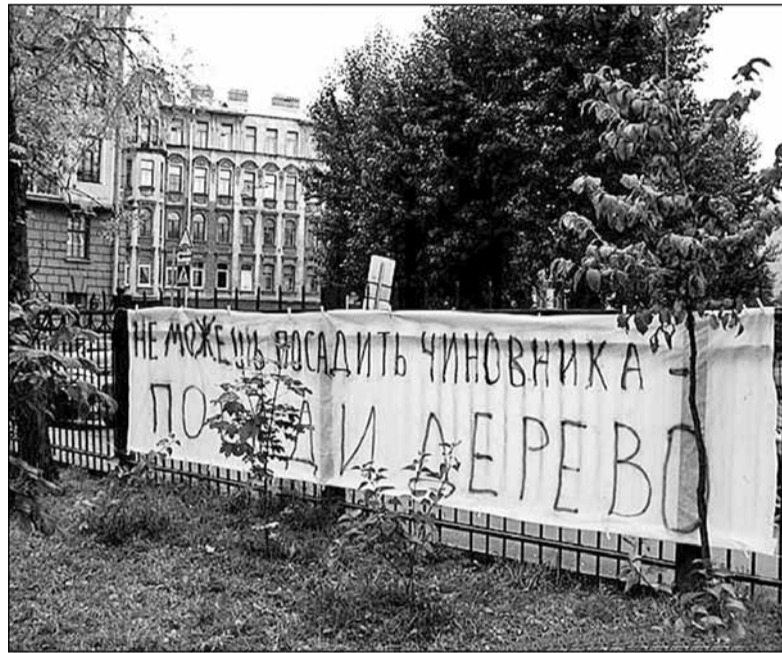 НЕ МОЖЕШЬ ПОСАДИТЬ ЧИНОВНИКА -
ПОСАДИ ДЕРЕВО